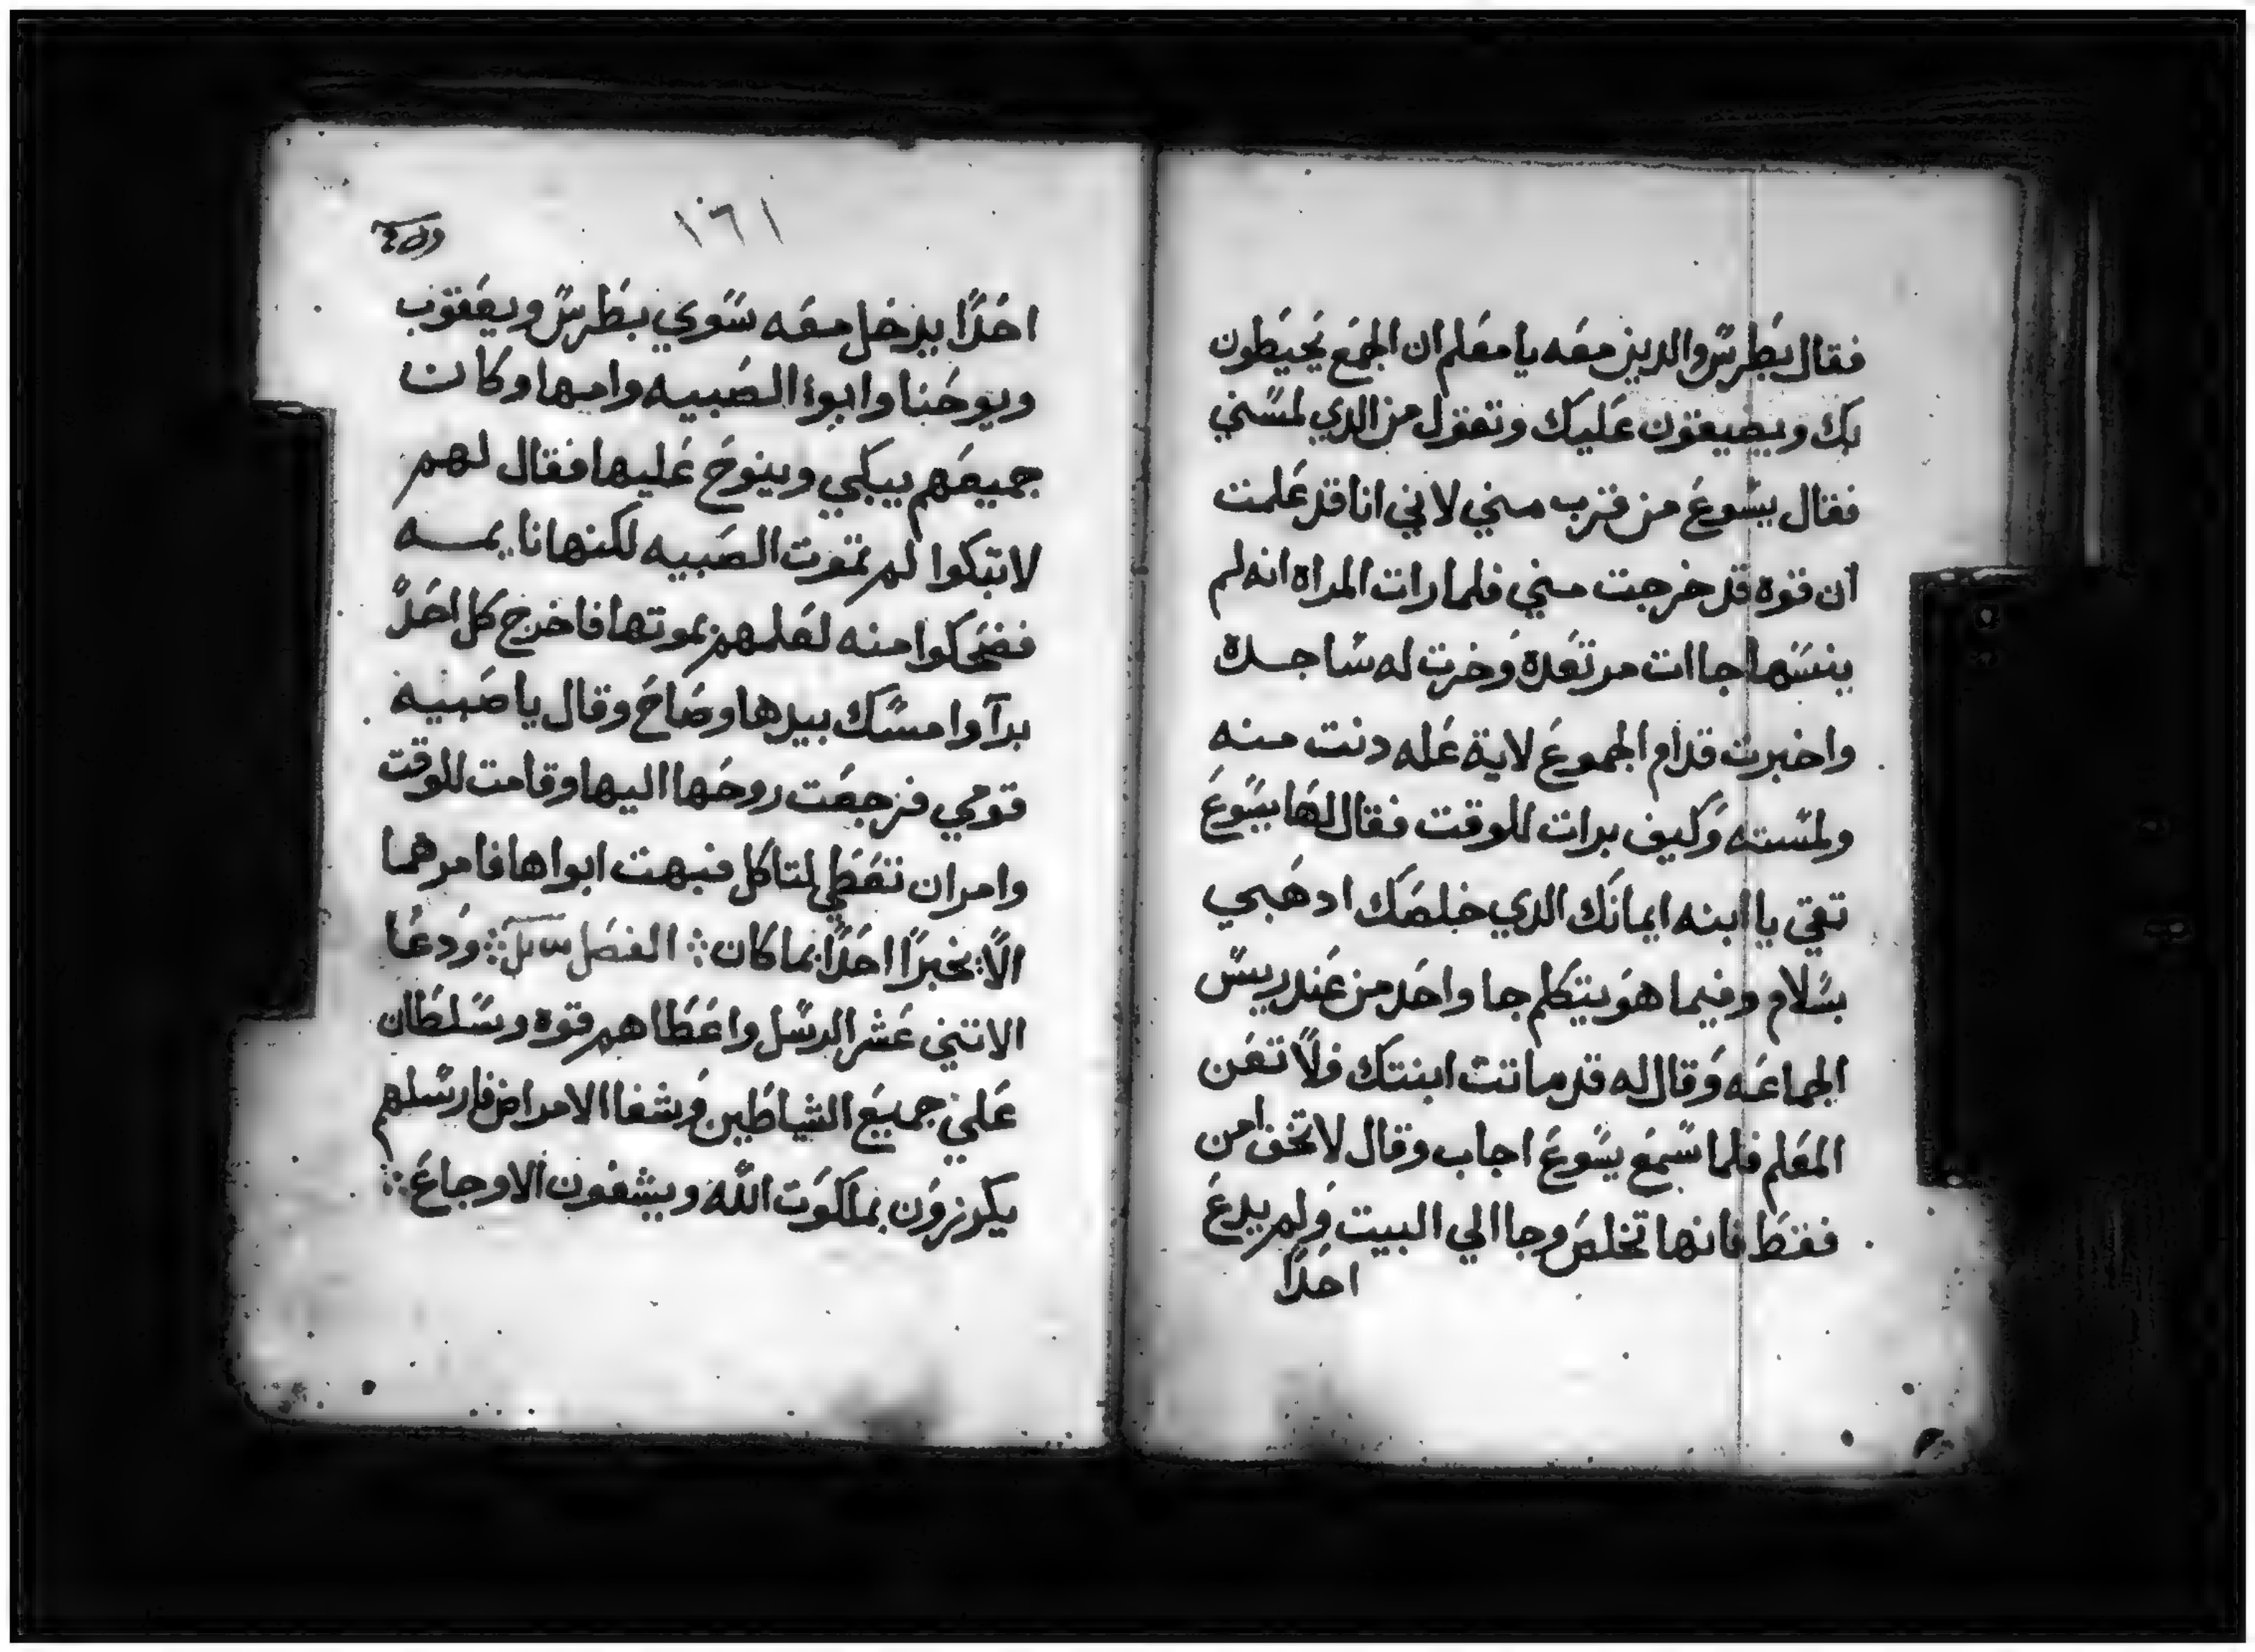 فقال بطرس والدين معه يا معلم ان الجمع يحيطون
بك ويضيقون عليك وتقول من الدي لمسني
فقال يسوع من قرب مني لاني انا قد علمت
ان قوه قد خرجت مني فلما رات المراه انه لم
ينسها جاات مرتعدة وخرت له ساجدة
واخبرت قدام الجموع لاية عله دنت منه
ولمسته وكيف برات للوقت فقال لها يسوع
تقي يا ابنه ايمانك الدي خلصك ادهبي
بسلام وفيما هو يتكلم جا واحد من عند ريس
الجماعه وقال له قد ماتت ابنتك فلا تعن
المعلم فلما سمع يسوع اجاب وقال لا تخف امن
فقط فانها تخلص وجا الي البيت ولم يدع
احدًا
١٦١
احدًا يدخل معه سوي بطرس ويعقوب
ويوحنا وابوا الصبيه وامها وكان
جميعهم يبكي وينوح عليها فقال لهم
لا تبكوا لم تموت الصبيه لكنها نايمه
فضحكوا منه لعلمهم بموتها فاخرج كل احدًا
برآ وامسك بيدها وصاح وقال يا صبيه
قومي فرجعت روحها اليها وقامت للوقت
وامر ان تعطي لتاكل فبهت ابواها فامرهما
الا يخبرا احدًا بما كان ❊ الفصل ❊ ودعا
الاتني عشر الرسل واعطاهم قوه وسلطان
علي جميع الشياطين وشفا الامراض فارسلهم
يكرزون بملكوت الله ويشفون الاوجاع ❊